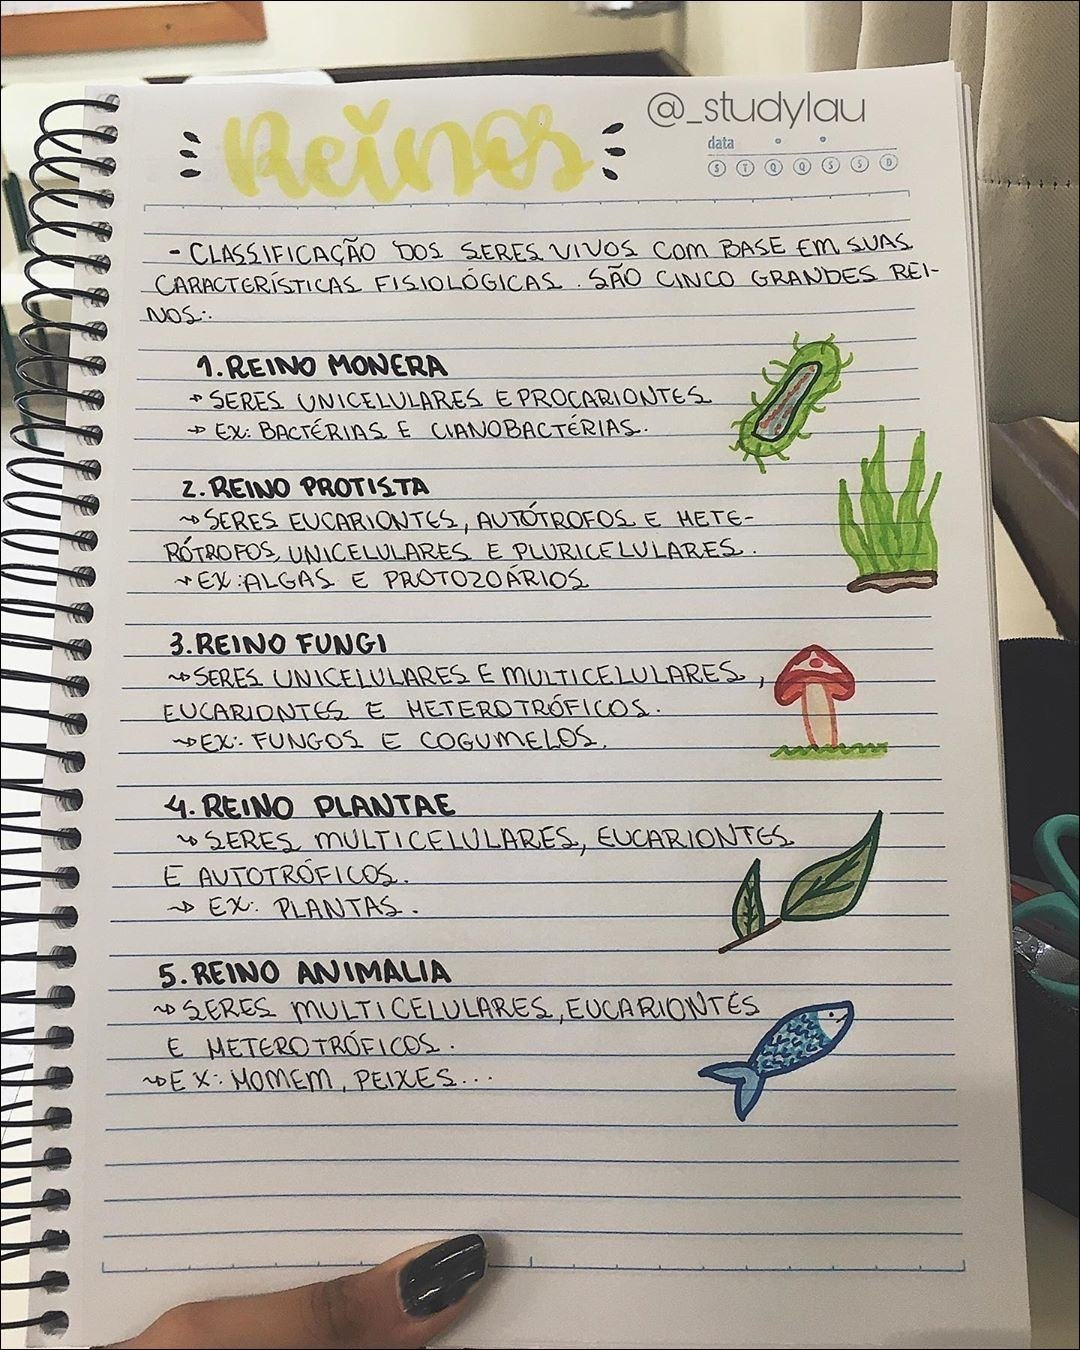 Reinos
@_studylau
data
S T Q Q S S D
- CLASSIFICAÇÃO DOS SERES VIVOS COM BASE EM SUAS
CARACTERÍSTICAS FISIOLÓGICAS. SÃO CINCO GRANDES REI-
NOS:
1. REINO MONERA
→ SERES UNICELULARES E PROCARIONTES
→ EX: BACTÉRIAS E CIANOBACTÉRIAS.
2. REINO PROTISTA
→ SERES EUCARIONTES, AUTÓTROFOS E HETE-
RÓTROFOS, UNICELULARES E PLURICELULARES.
→ EX: ALGAS E PROTOZOÁRIOS
3. REINO FUNGI
→ SERES UNICELULARES E MULTICELULARES,
EUCARIONTES E HETEROTRÓFICOS.
→ EX: FUNGOS E COGUMELOS.
4. REINO PLANTAE
→ SERES MULTICELULARES, EUCARIONTES
E AUTOTRÓFICOS.
→ EX: PLANTAS.
5. REINO ANIMALIA
→ SERES MULTICELULARES, EUCARIONTES
E HETEROTRÓFICOS.
→ EX: HOMEM, PEIXES...